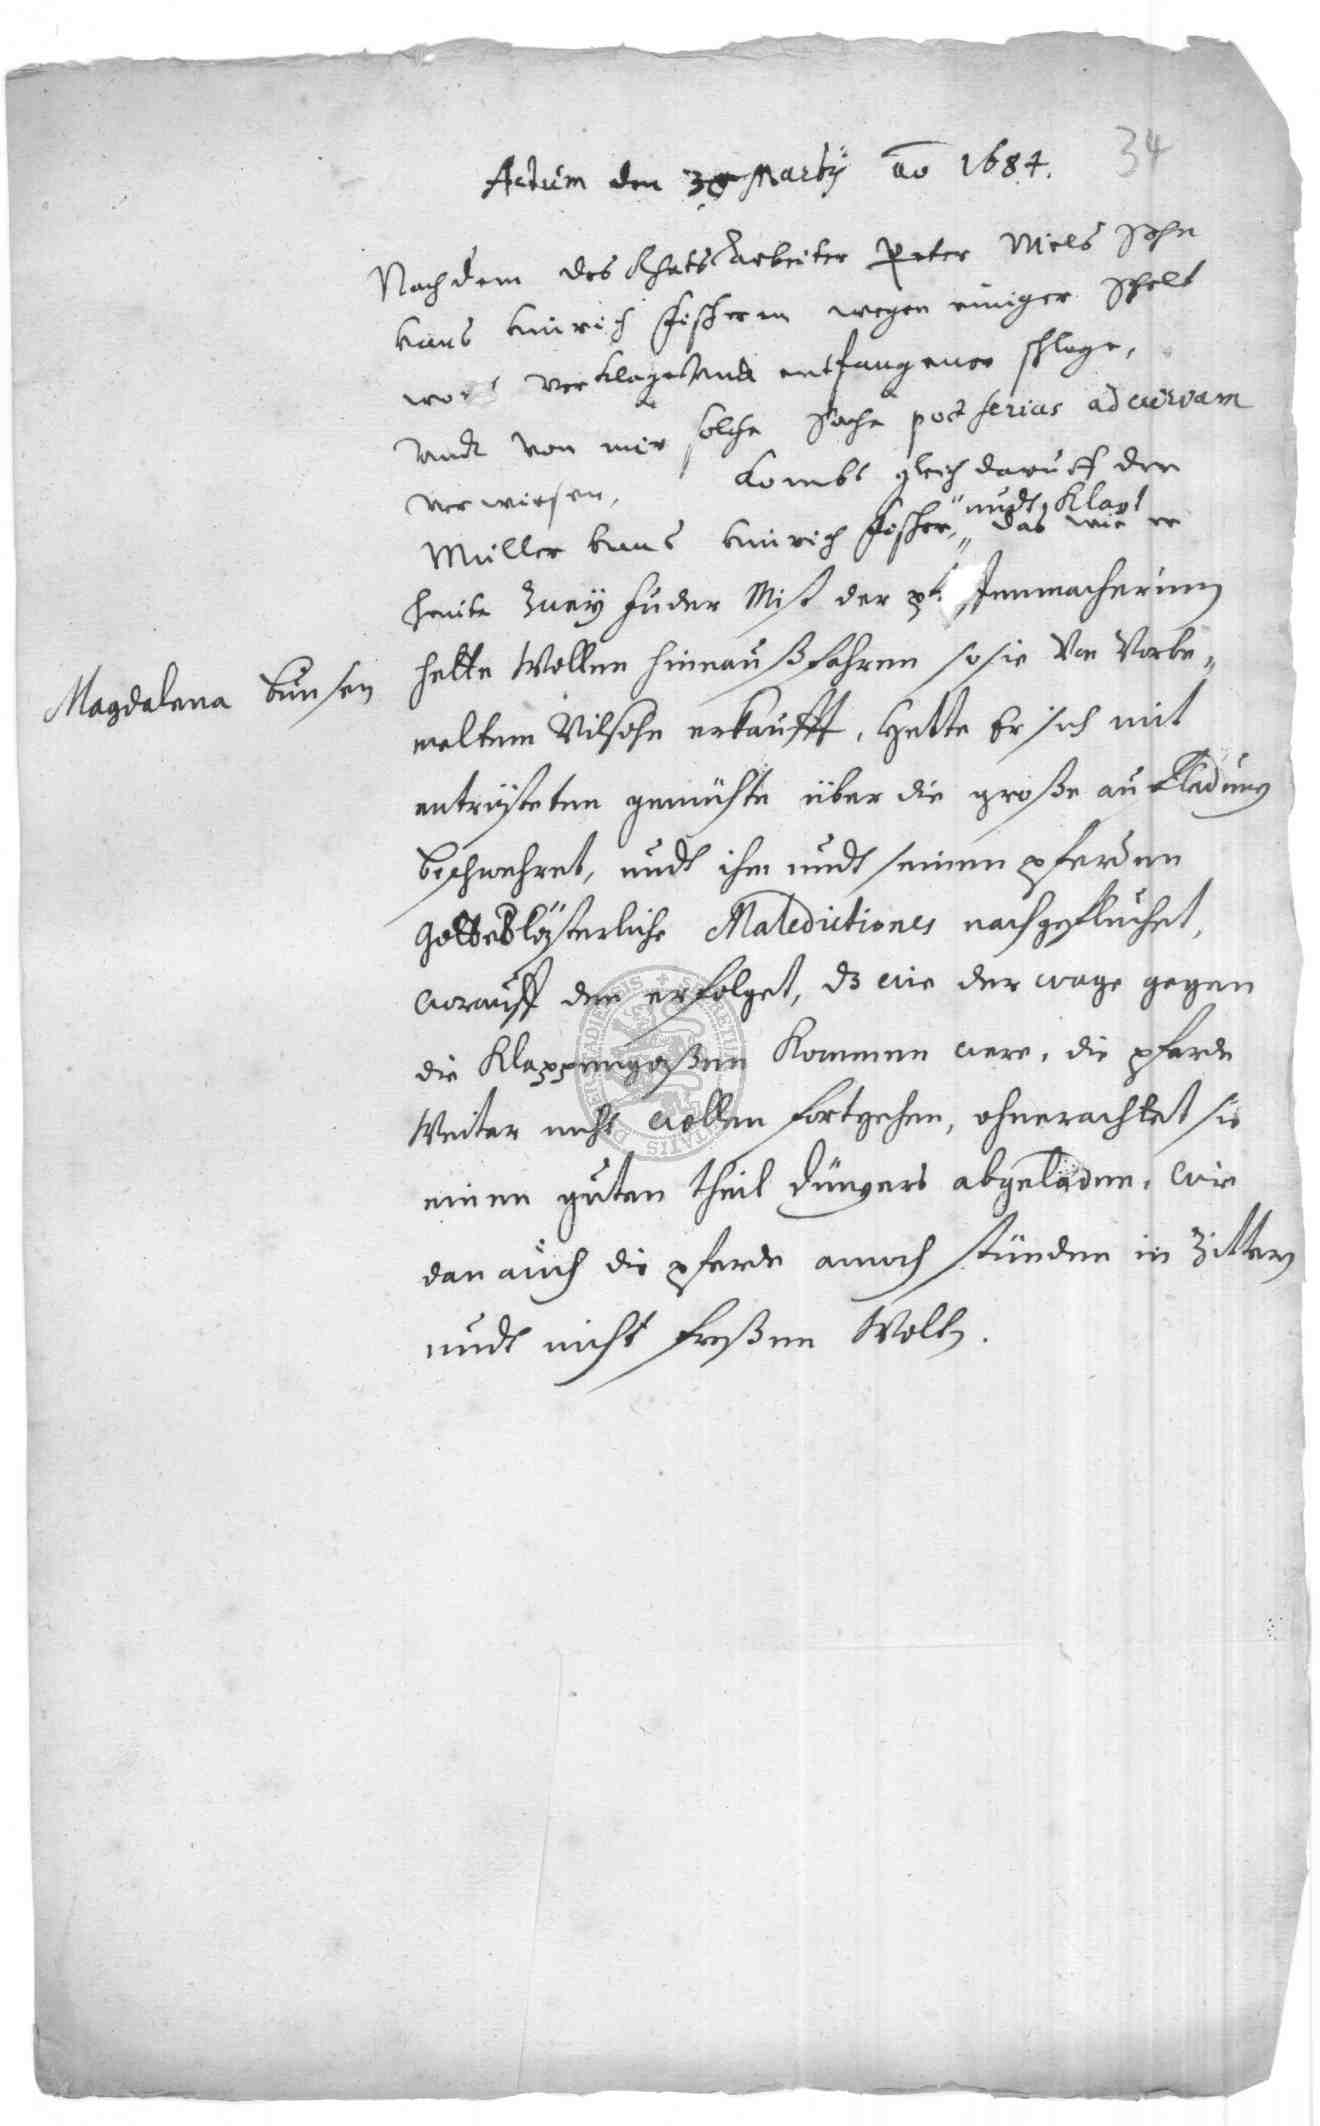 34
Actum den 30 Martij ao 1684.
Nachdem des Rhats Arbeiter Peter Niels Sohn
hans hinrich Fischern wegen einiger Schelt
wort verklaget undt entfangener schlage,
undt von mir solche Sache post ferias ad curiam
verwiesen, kombt gleich darauff der
Müller hans hinrich Fischer, „undt klagt
„ das wie er
heute Zwey Fuder Mist der
hette Wollen hinauß fahren so sie von Vorbe„
Magdalena Bunsen
meltem Nilsohn erkaufft, hette Er sich mit
entrüsteten gemühte über die große auffladung
beschwehret, undt ihm undt seinen pferden
Gotteslästerliche Maledictiones nachgefluchet,
worauff den erfolget, dz wie der wage gegen
die Klappengaßen kommen were, die pferde
Weiter nicht wollen fortgehen, ohnerachtet sie
einen guten theil düngers abgeladen, wie
dan auch die pferde annoch stünden in Zittern
undt nicht freßen Wolten.